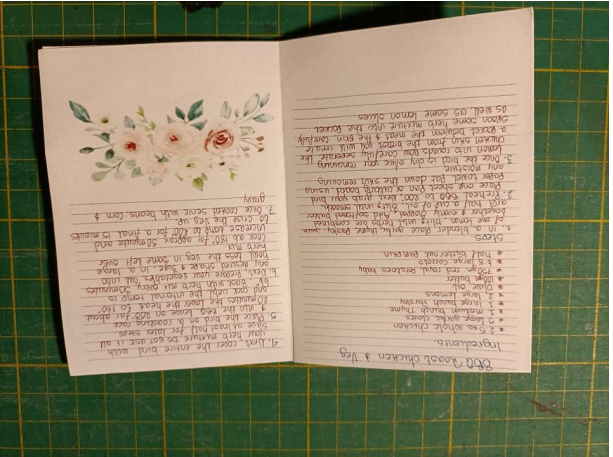 BBQ Roast Chicken & Veg
Ingredients.
2.5kg whole chicken
5 large garlic cloves
1 medium bunch Thyme
1 large bunch Parsley
2 large lemons
Olive Oil
100gr butter
750gr red royal potatoes baby
6-8 large carrots
half butternut pumpkin
Steps
1. In a blender Place garlic, thyme, Parsley, juice
of one lemon, blitz until herbs are combined
together & finely chopped. Add softened butter
and half a cup of oil. Blitz until smooth.
2. Preheat to BBQ 200°, your bird
Place on a cutting board using
Paper towel Pat down the skin removing
any moisture.
3. Once the bird is dry slice your remaining
lemon into rounds. Now carefully seperate the
chicken skin from the breast you will create
a pocket between the meat & the skin carefully
spoon some herb mixture into the Pocket
as well as some lemon slices
4. Next cover the entire bird with
your herb mixture. Do not use it all
Save at least half for later steps
5. Place the bird on a cooking rack
& into the BBQ. leave on 200° for about
20 minutes. lower the heat to 180°
and cook until the internal temp is
66° Baste with herb mix every 30minutes
6. Next, Prepare your vegetables cut into
any desired shape & size. In a large
bowl toss the veg in some left over
herb mix
Cook at 180° for approx 30minute and
Increase temp to 200° for a final 15 minutes
to crisp the veg up.
7. Once cooked serve with Beans, corn &
gravy